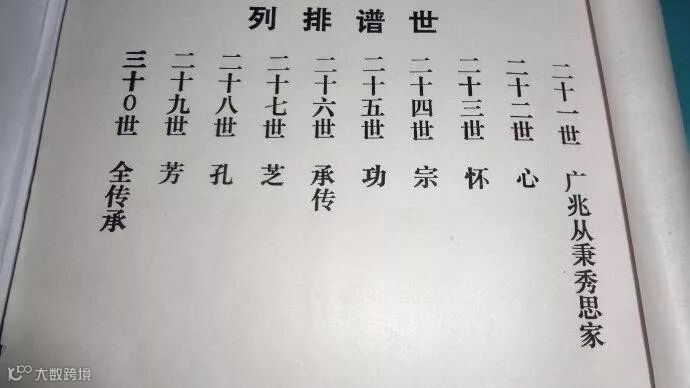 世谱排列
二十一世 广兆从秉秀思家
二十二世 心
二十三世 怀
二十四世 宗
二十五世 功
二十六世 承传
二十七世 芝
二十八世 孔
二十九世 芳
三十0世 全传承
大数跨境